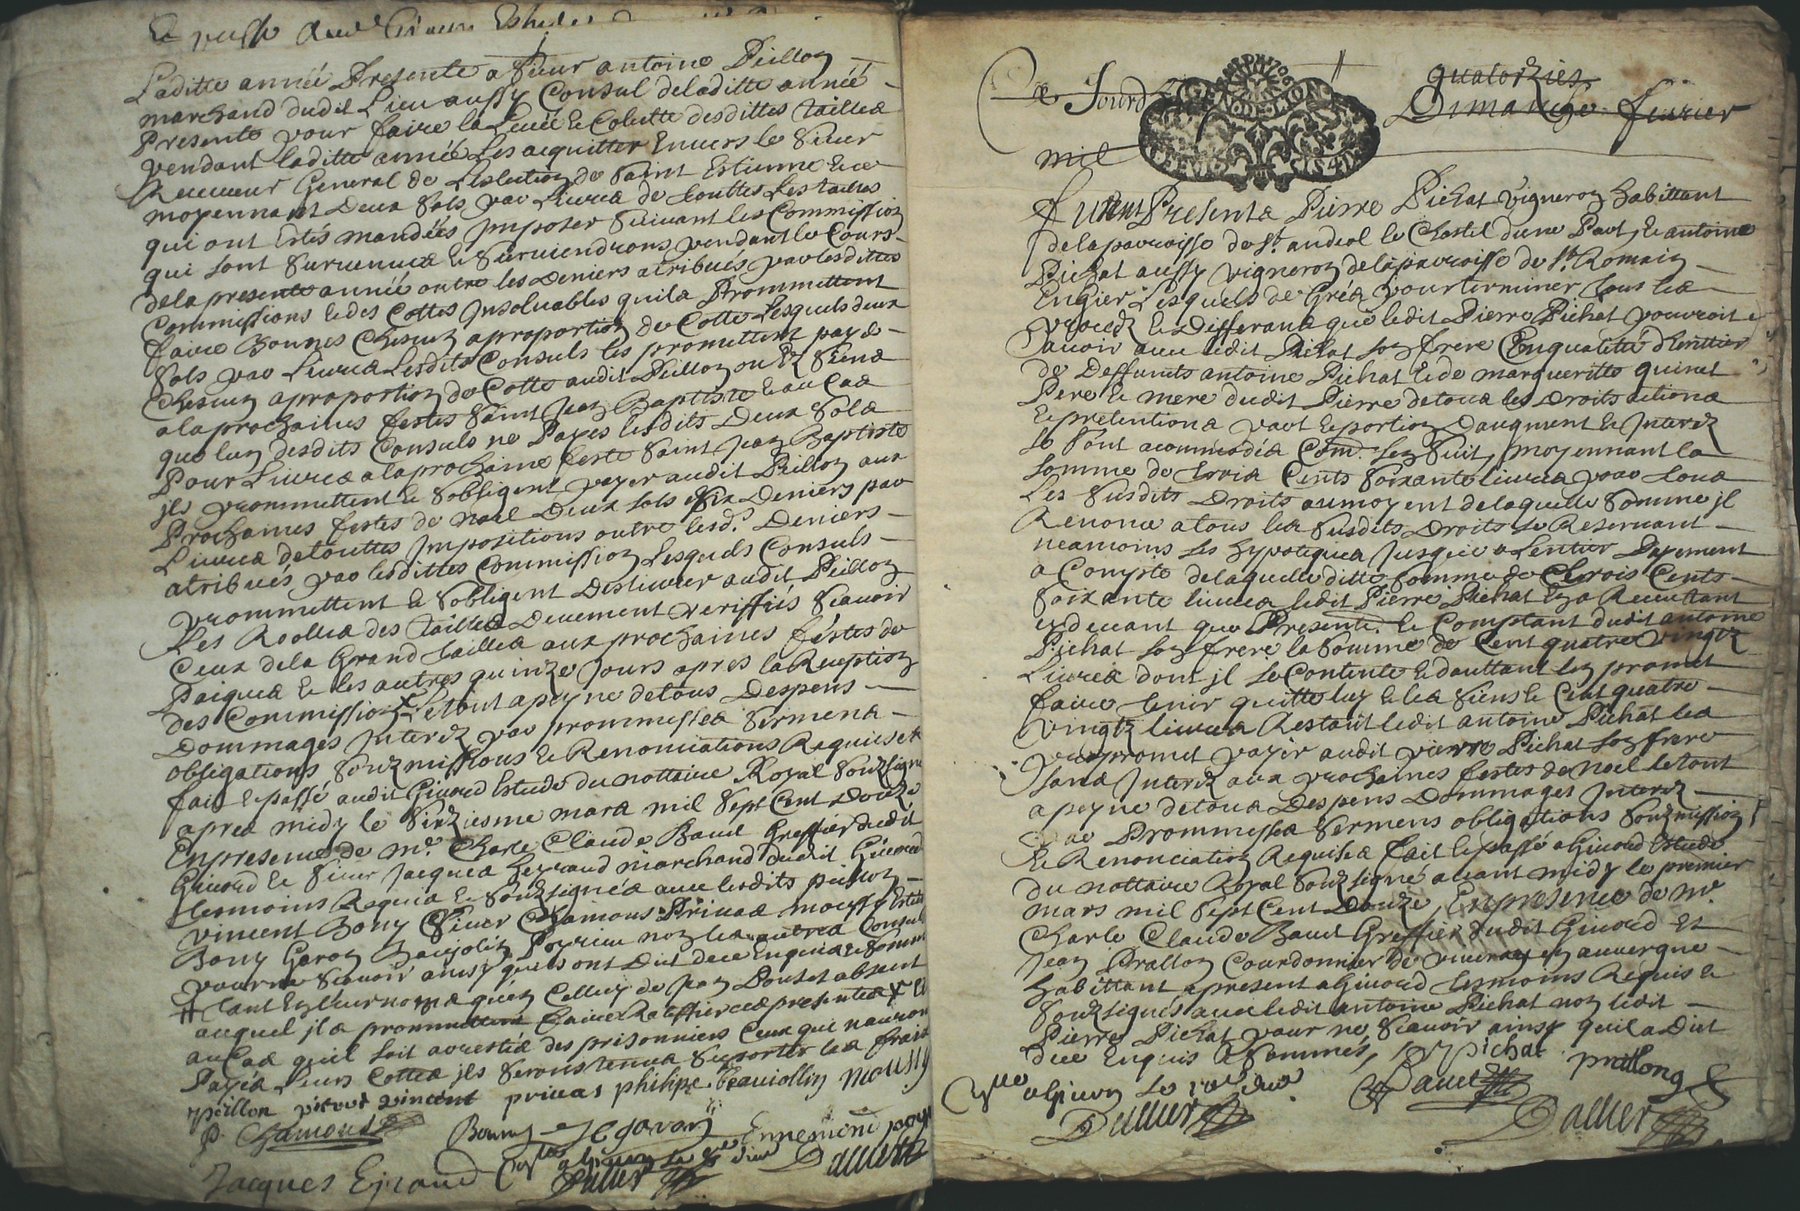 Laditte année Presente a Sieur antoine Peillon
marchand dudit Lieu aussy Consul de laditte année
Presente pour faire la Levée & Colecte desdittes tailles
pendant laditte année Les acquitter Envers le Sieur
Receveur General de Leslection de Saint Estienne & ce
moyennant Deux Sols par Livres de touttes Les tailles
qui ont Estés mandées Imposer Suivant les Commission
qui sont Survenues & Surviendrons pendant le Cours
de la presente année outre les Deniers atribués par lesdittes
Commissions & des Cottes Insoluables quils Prommettent
faire Bonnes Chescun a proportion de Cotte Lesquels deux
Sols par Livres Lesdits Consuls les promettent payé
Chescun a proportion de Cotte audit Peillon ou Es Siens
a la prochaines festes Saint Jean Baptiste & au Cas
que lun desdits Consuls ne Payes lesdits Deux Sols
Pour Livres a la prochaine feste Saint Jean Baptiste
jls prommettent & Sobligent payer audit Peillon aux
Prochaines festes de noel Deux sols Six Deniers par
Livres de touttes Impositions outre lesd. Deniers
atribués par lesdittes Commission Lesquels Consuls
prommettent & Sobligent Deslivrer audit Peillon
Les Roolles des tailles Deuement veriffiés Scavoir
Ceux de la Grand tailles aux prochaines festes de
Paiques & les autres quinze Jours apres la Reception
des Commission & le tout a peyne de tous Despens
Dommages Interez par prommisses Sermens
obligations Soubmissions & Renonciations Requises &
fait & passé audit Givord Estude du nottaire Royal Soubsigné
apres midy le Sixziesme mars mil Sept Cent Douze
En presence de Me. Charle Claude Bauet Greffier dudit
Givord & Sieur Jacques Heyraud marchand dudit Givord
tesmoins Requis & Soubsignés avec lesdits peillon
vincent Bony Sieur Chamous Privas moussy
Bony Garon Baujolin Poyrieu non les autres Consul
pour ne Scavoir ainsy quils ont Dit de ce Enquis & Sommé
tant En leur noms quen Celluy de Jean Ponset absent
auquel jls prommettent faire Ratiffier ces presentes & Et
au Cas quil soit arrestés des prisonniers Ceux qui nauron
Payés Leurs Cottes jls Seront tenus Suporter les frais
peillon pierre vincent privas philipe beauiollin moussy
P. Chamous
Bonny J Garon Ennemond
Jacques Ejraud
Dalier
mil
quatorzies
Dimanche fevrier
furent Presents Pierre Pichat Vigneron habittant
de la parroisse de St. andeol le Chastel dune Part, & antoine
Pichat aussy vigneron de la parroisse de St. Romain
En gier Lesquels de Grés pour terminer tous les
procez & Differans que ledit Pierre Pichat pouvroit
avoir avec ledit Pichat son frere En qualitté dherittier
de Deffunts antoine Pichat & de margueritte quinet
Pere & mere dudit Pierre de tous les Droits actions
& pretentions part & portion Daugment & Interez
Se sont acommodés Comme sen Suit, moyennant la
somme de trois Cents Soixante livres par tous
Les Susdits Droits au moyent de laquelle Somme jl
Renonce a tous les Susdits Droits Se Reservant
neamoins Ses hypoteques Jusques a Lentier Payement
a Compte de laquelle ditte Somme de trois Cents
Soixante livres ledit Pierre Pichat En a Receu tant
cy devant que Presente. & Comptant dudit antoine
Pichat son frere la Somme de Cent quatre vingtz
Livres dont jl se Contente & dauttant len promet
faire tenir quitte luy & les Siens & Cent quatre
vingtz livres Restant ledit antoine Pichat les
promet payer audit pierre Pichat son frere
sans Interez aux prochaines festes de noel le tout
a peyne de tous Despens Dommages Interez
par Prommisses Sermens obligations Soubmission
& Renonciation Requises fait & passé a Givord Estude
du nottaire Royal Soubsigné avant midy le premier
mars mil Sept Cent Douze, En presence de Me.
Charle Claude Bauet Greffier dudit Givord Et
Jean Prallon Courdonnier de viveray en auvergne
habittant a present a Givord tesmoins Requis &
Soubsignés avec ledit antoine Pichat non ledit
Pierre Pichat pour ne Scavoir ainsy quil a Dit
de ce Enquis & Sommés,
A Pichat prallong
Bauet
Dalier
Dalier